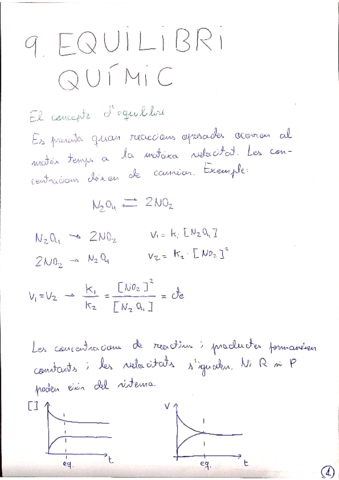 9. EQUILIBRI
QUÍMIC
El concepte d'equilibri
Es presenta quan reaccions oposades ocorren al
mateix temps a la mateixa velocitat. Les con-
centracions deixen de canviar. Exemple:
N₂O₄ ⇌ 2NO₂
N₂O₄ → 2NO₂ V₁ = K₁ [N₂O₄]
2NO₂ → N₂O₄ V₂ = K₂ · [NO₂]²
V₁ = V₂ → K₁/K₂ = [NO₂]²/[N₂O₄] = cte
Les concentracions de reactius i productes romanen
constants i les velocitats s'igualen. Ni R ni P
poden eixir del sistema.
[] V
eq. t eq. t
1